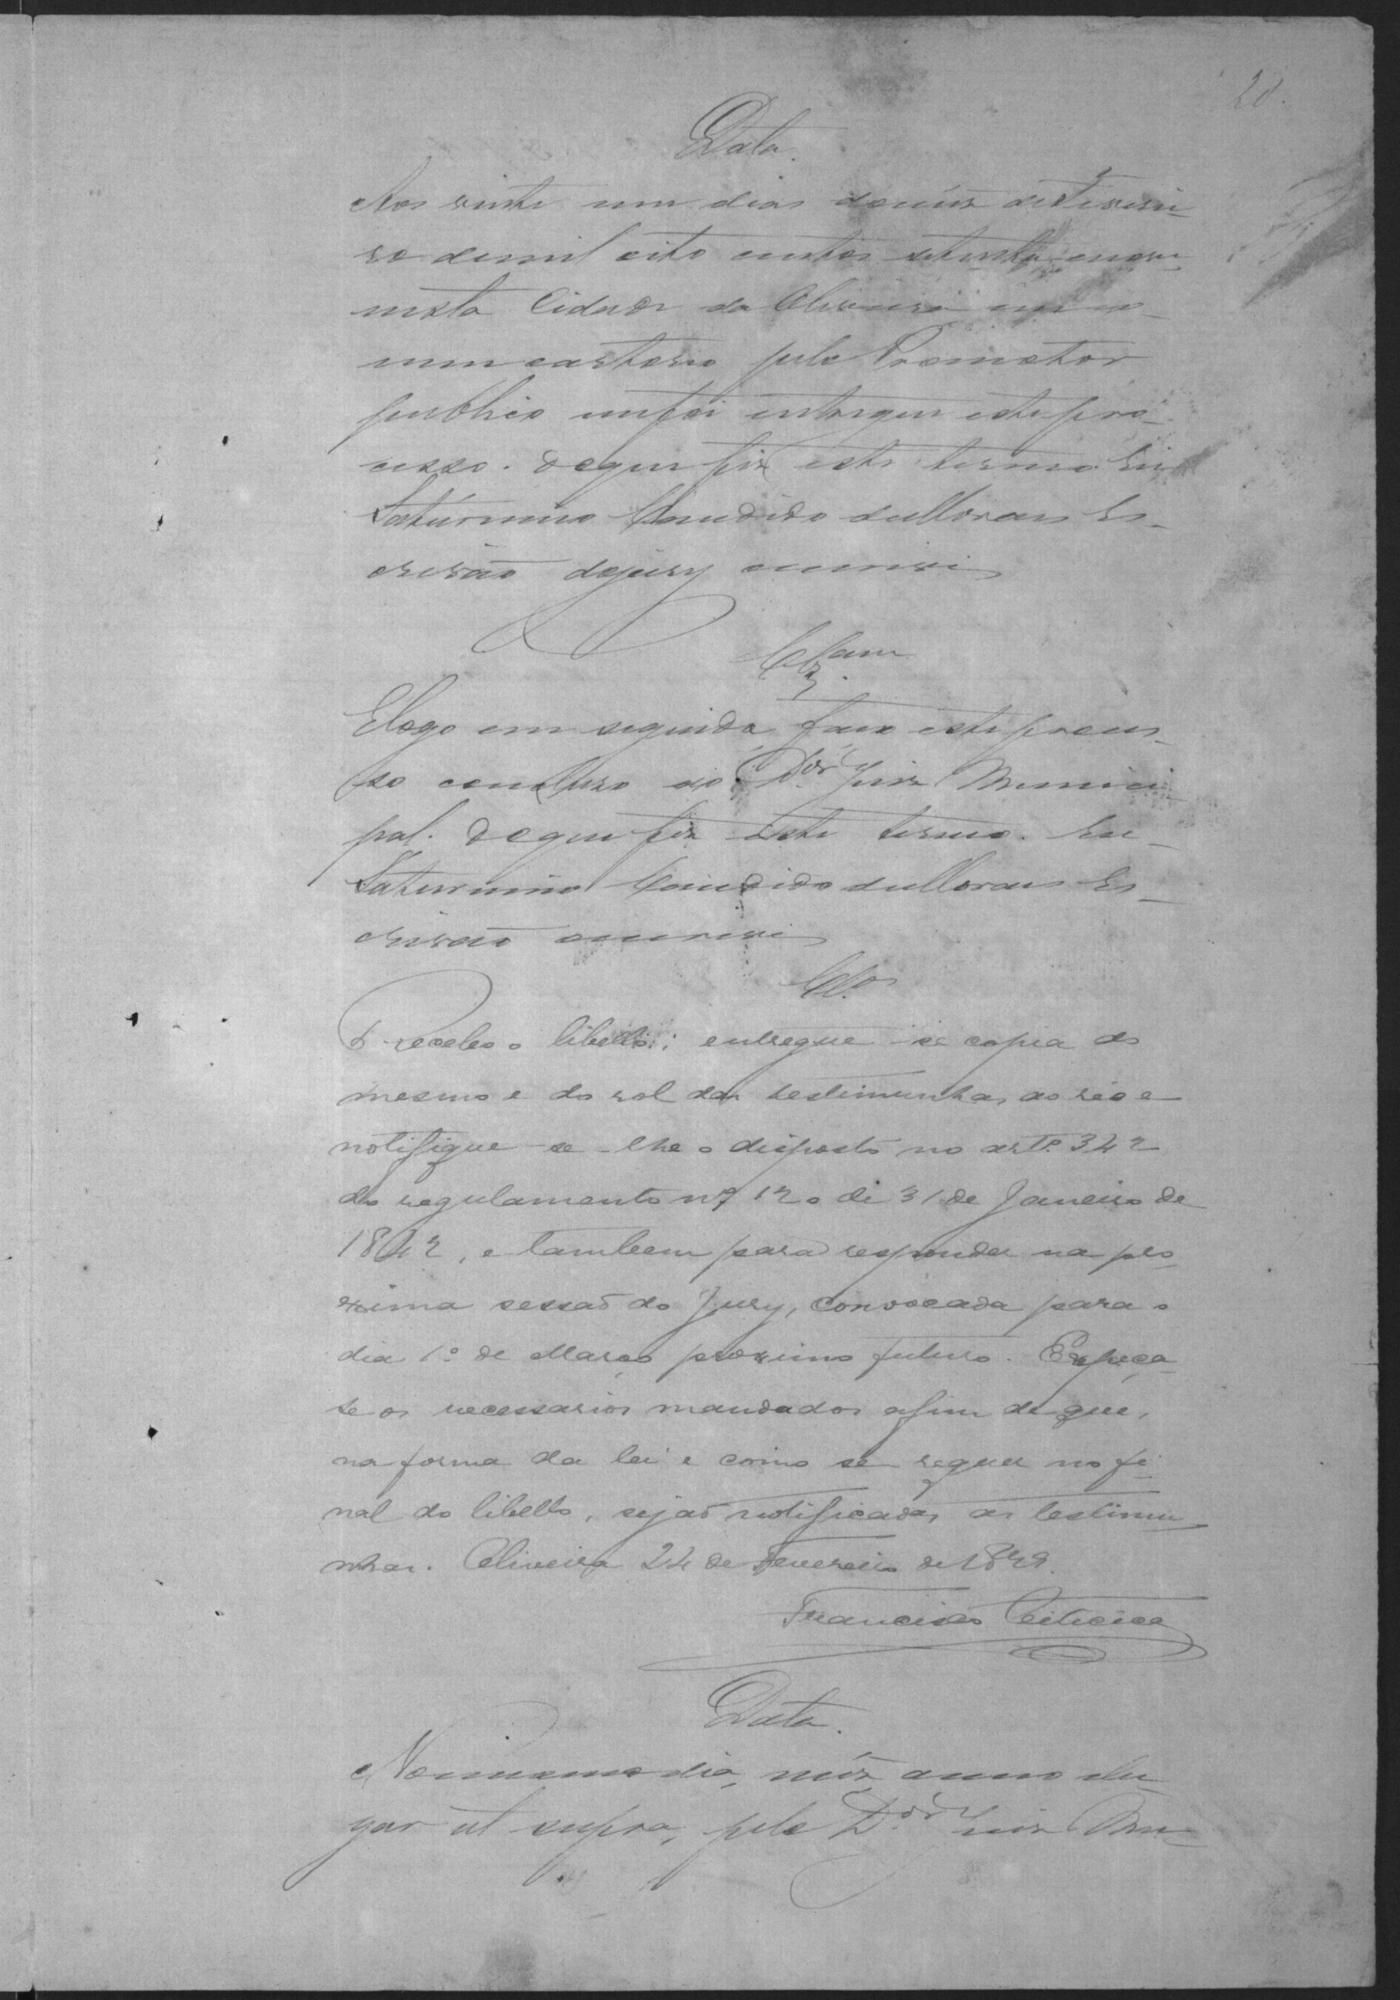 20.
Data.
Aos vinte um dias do mez de Feverei-
ro de mil oito centos setenta nove
nesta Cidade da Oliveira em o
meu cartorio pelo Promotor
publico me foi entregue este pro-
cesso. De que fiz este termo. Eu
Saturnino Candido de Moraes Es-
crivão do jury
Clzam
E logo em seguida faço este proces-
so concluso ao Dor. Juiz Munici-
pal. De que fiz este termo. Eu
Saturnino Candido de Moraes Es-
crivão
Clo.
Recebo o libello; entregue-se copia do
mesmo e do rol das testimunhas ao reo e
notifique-se-lhe o disposto no arto. 342
do regulamento nº 120 de 31 de Janeiro de
1842, e tambem para responder na pro
xima sessaõ do Jury, convocada para o
dia 1º de Março proximo futuro. Expeça-
se os necessarios mandados afim de que,
na forma da lei e como se requer no fi-
nal do libello, sejaõ notificadas as testimu
nhas. Oliveira 24 de Fevereiro de 1879.
Francisco
Data.
No mesmo dia, mez, anno e lu-
gar ut supra, pelo Dor. Juiz Mu-